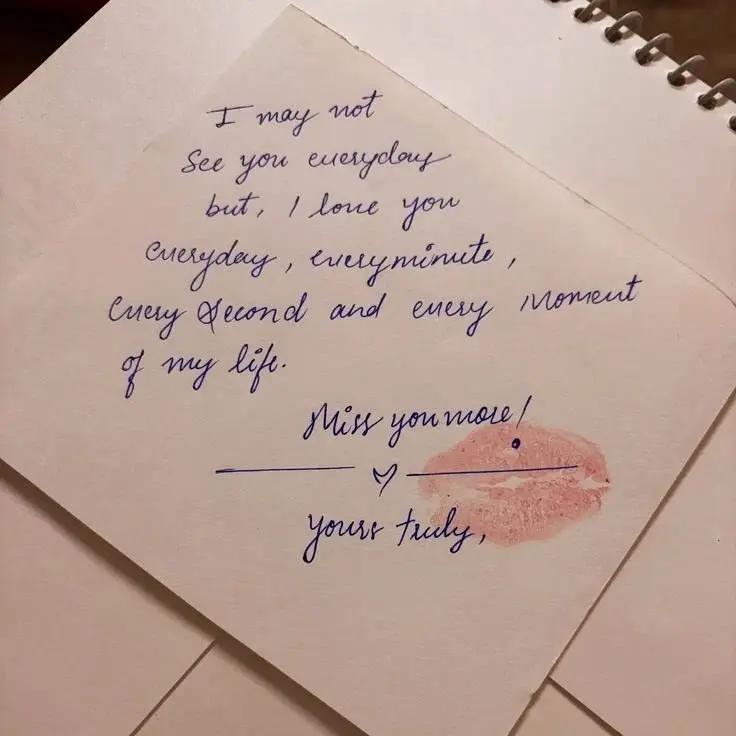 I may not
See you everyday
but, I love you
everyday, everyminute,
Every Second and every moment
of my life.
Miss you more!
Yours truly,